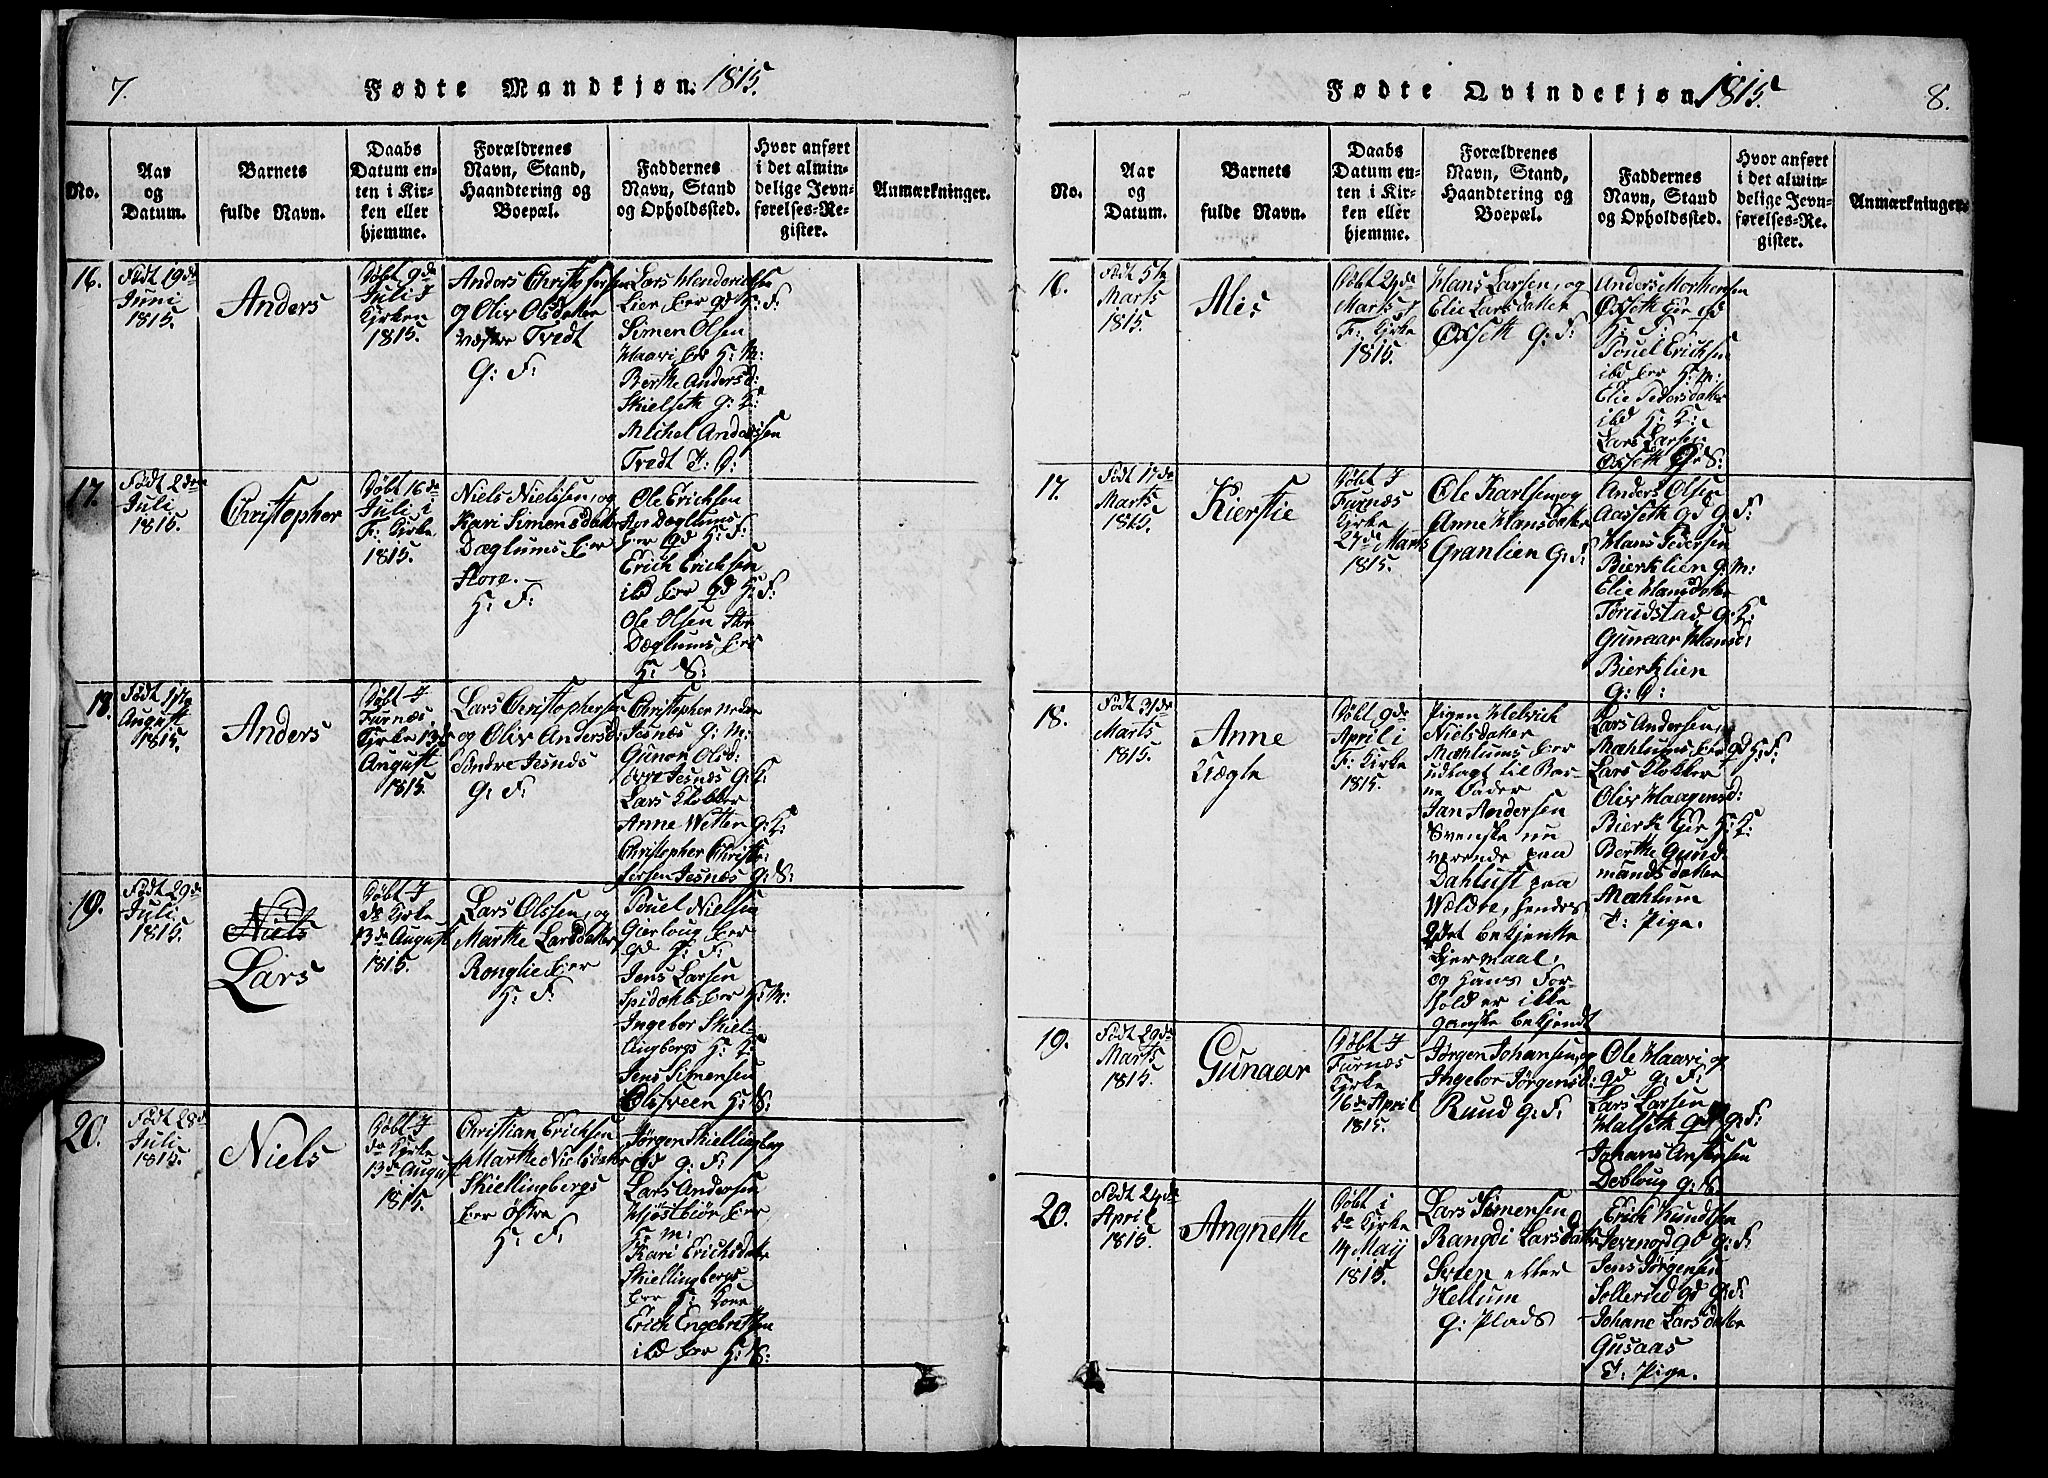 7.
Fødte Mandkjøn. 1815.
No.
Aar
og
Datum.
Barnets
fulde Navn.
Daabs
Datum en-
ten i Kir-
ken eller
hjemme.
Forældrenes
Navn, Stand,
Haandtering og
Boepæl.
Faddernes
Navn, Stand
og Opholdssted.
Hvor anført
i det almin-
delige Jevn-
førelses-Re-
gister.
Anmærkninger.
16.
Født 19de
Juni
1815.
Anders
Døbt 9de
Juli I
Kirken
1815.
Anders Christophersen
og Oliv Olsdatter
Tvedt
G: F:
Lars
Lier Eier gd H: F:
Simen Olsen
Haavi Eier H: M:
Berthe Andersd:
Skielseth g: K:
Michel Andersen
Tvedt
17.
Født 2den
Juli
1815.
Christopher
Døbt 16de
Juli i
F: Kirke
1815.
Niels Nielsen, og
Kari Simensdatter
Dæglums Eier
store. —
H: F:
Ole Erichsen
Dæglums
Eier gd H: F:
Erich Erichsen
ibd Eier gd H: F:
Ole Olsen Stor
Dæglums Eier
H: S:
18.
Født 1ste
August
1815.
Anders
Døbt I
Furnæs
Kirke 13de
August
1815.
Lars Christophersen
og Oliv Andersd:
Søndre Jesnæs
G: F:
Christopher Nedre
Jesnæs G: M:
Gunor Olsd:
øvre Jesnæs G: K:
Lars Klokker
Anne Wetten g: K:
Christopher Christo-
fersen Jesnæs g: S:
19.
Født 29de
Juli
1815.
Niels
Lars
Døbt I
do Kirke
13de August
1815.
Lars Olssen, og
Marthe Larsdatter
Ronglie Eier
H: F:
Pouel Nielsen
Gierloug Eier
gd H: F:
Jens Larsen
Spidahls Eier H: M:
Ingebor Skiel-
lingbergs H: K:
Jens Simensen
Olsveen H: S:
20.
Født 28de
Juli
1815.
Niels
Døbt I
do Kirke
13de August
1815.
Christian Erichsen
Marthe Nielsdatter
Skiellingbergs
Eier østre
H: F:
Jørgen Skiellingberg
gd g: F:
Lars Andersen
Eier
H: M:
Kari Erichsdatter
Skiellingbergs
Eier H: Kone
Erich Engebretsen
ibd Eier H: S:
8.
Fødte Qvindekjøn 1815.
No.
Aar
og
Datum.
Barnets
fulde Navn.
Daabs
Datum en-
ten i Kir-
ken eller
hjemme.
Forældrenes
Navn, Stand,
Haandtering og
Boepæl.
Faddernes
Navn, Stand
og Opholdssted.
Hvor anført
i det almin-
delige Jevn-
førelses-Re-
gister.
Anmærkninger.
16.
Født 5te
Marts
1815.
Alis
Døbt 24de
Marts I
F: Kirke
1815.
Hans Larsen, og
Elie Larsdatter
Øxseth G: F:
Anders Mortensen
Øxseth Eier gd
H: F:
Pouel Erichsen
ibd Eier H: M:
Elie Pedersdatter
ibd H: K:
Lars Larsen
Øxseth G: S:
17.
Født 17de
Marts
1815.
Kierstie
Døbt I
Furnæs
Kirke
27de Marts
1815.
Ole Karlsen, og
Anne Hansdatter
Granlien G: F:
Anders Olsen
Aasseth gd g: F:
Hans Pedersen
Bierklien g: M:
Elie Hansdatter
Tørudstad g: K:
Gunaar Hansd:
Bierklien
g: P:
18.
Født 31de
Marts
1815.
Anne
Døbt 9de
April i
F: Kirke
1815.
Pigen Helvich
Nielsdatter
Mæhlums Eier
udlagt til Bar-
ne Fader
Jan Andersen
Svenske nu
værende paa
Dahlust paa
Wældte, hendes
2det bekjendte
Lejermaal,
og hans For-
hold er ikke
ganske bekjendt
Lars Andersen,
Mæhlums Eier gd H: F:
Lars Klokker
Oliv Haagensd:
Bierk Eier H: K:
Berthe Gund-
mandsdatter
Mæhlum
T: Pige.
19.
Født 29de
Marts
1815.
Gunaar
Døbt I
Furnæs
Kirke
16de April
1815.
Jørgen Johansen, og
Ingebor Jørgensd:
Ruud G: F:
Ole Haavi, og
gd g: F:
Lars Larsen
Halseth gd g: F:
Johans Antonsen
Debloug g: S:
20.
Født 24de
April
1815.
Angnette
Døbt i
do Kirke
14 Maij
1815.
Lars Simensen
Rangdi Larsdatter
Sveen eller
Hellum
G: Plads
Erich Knudtsen
Jevenord gd g: F:
Jens Jørgensen
Sollerud gd g: F:
Johane Larsdatter
Gusaas
T: Pige.